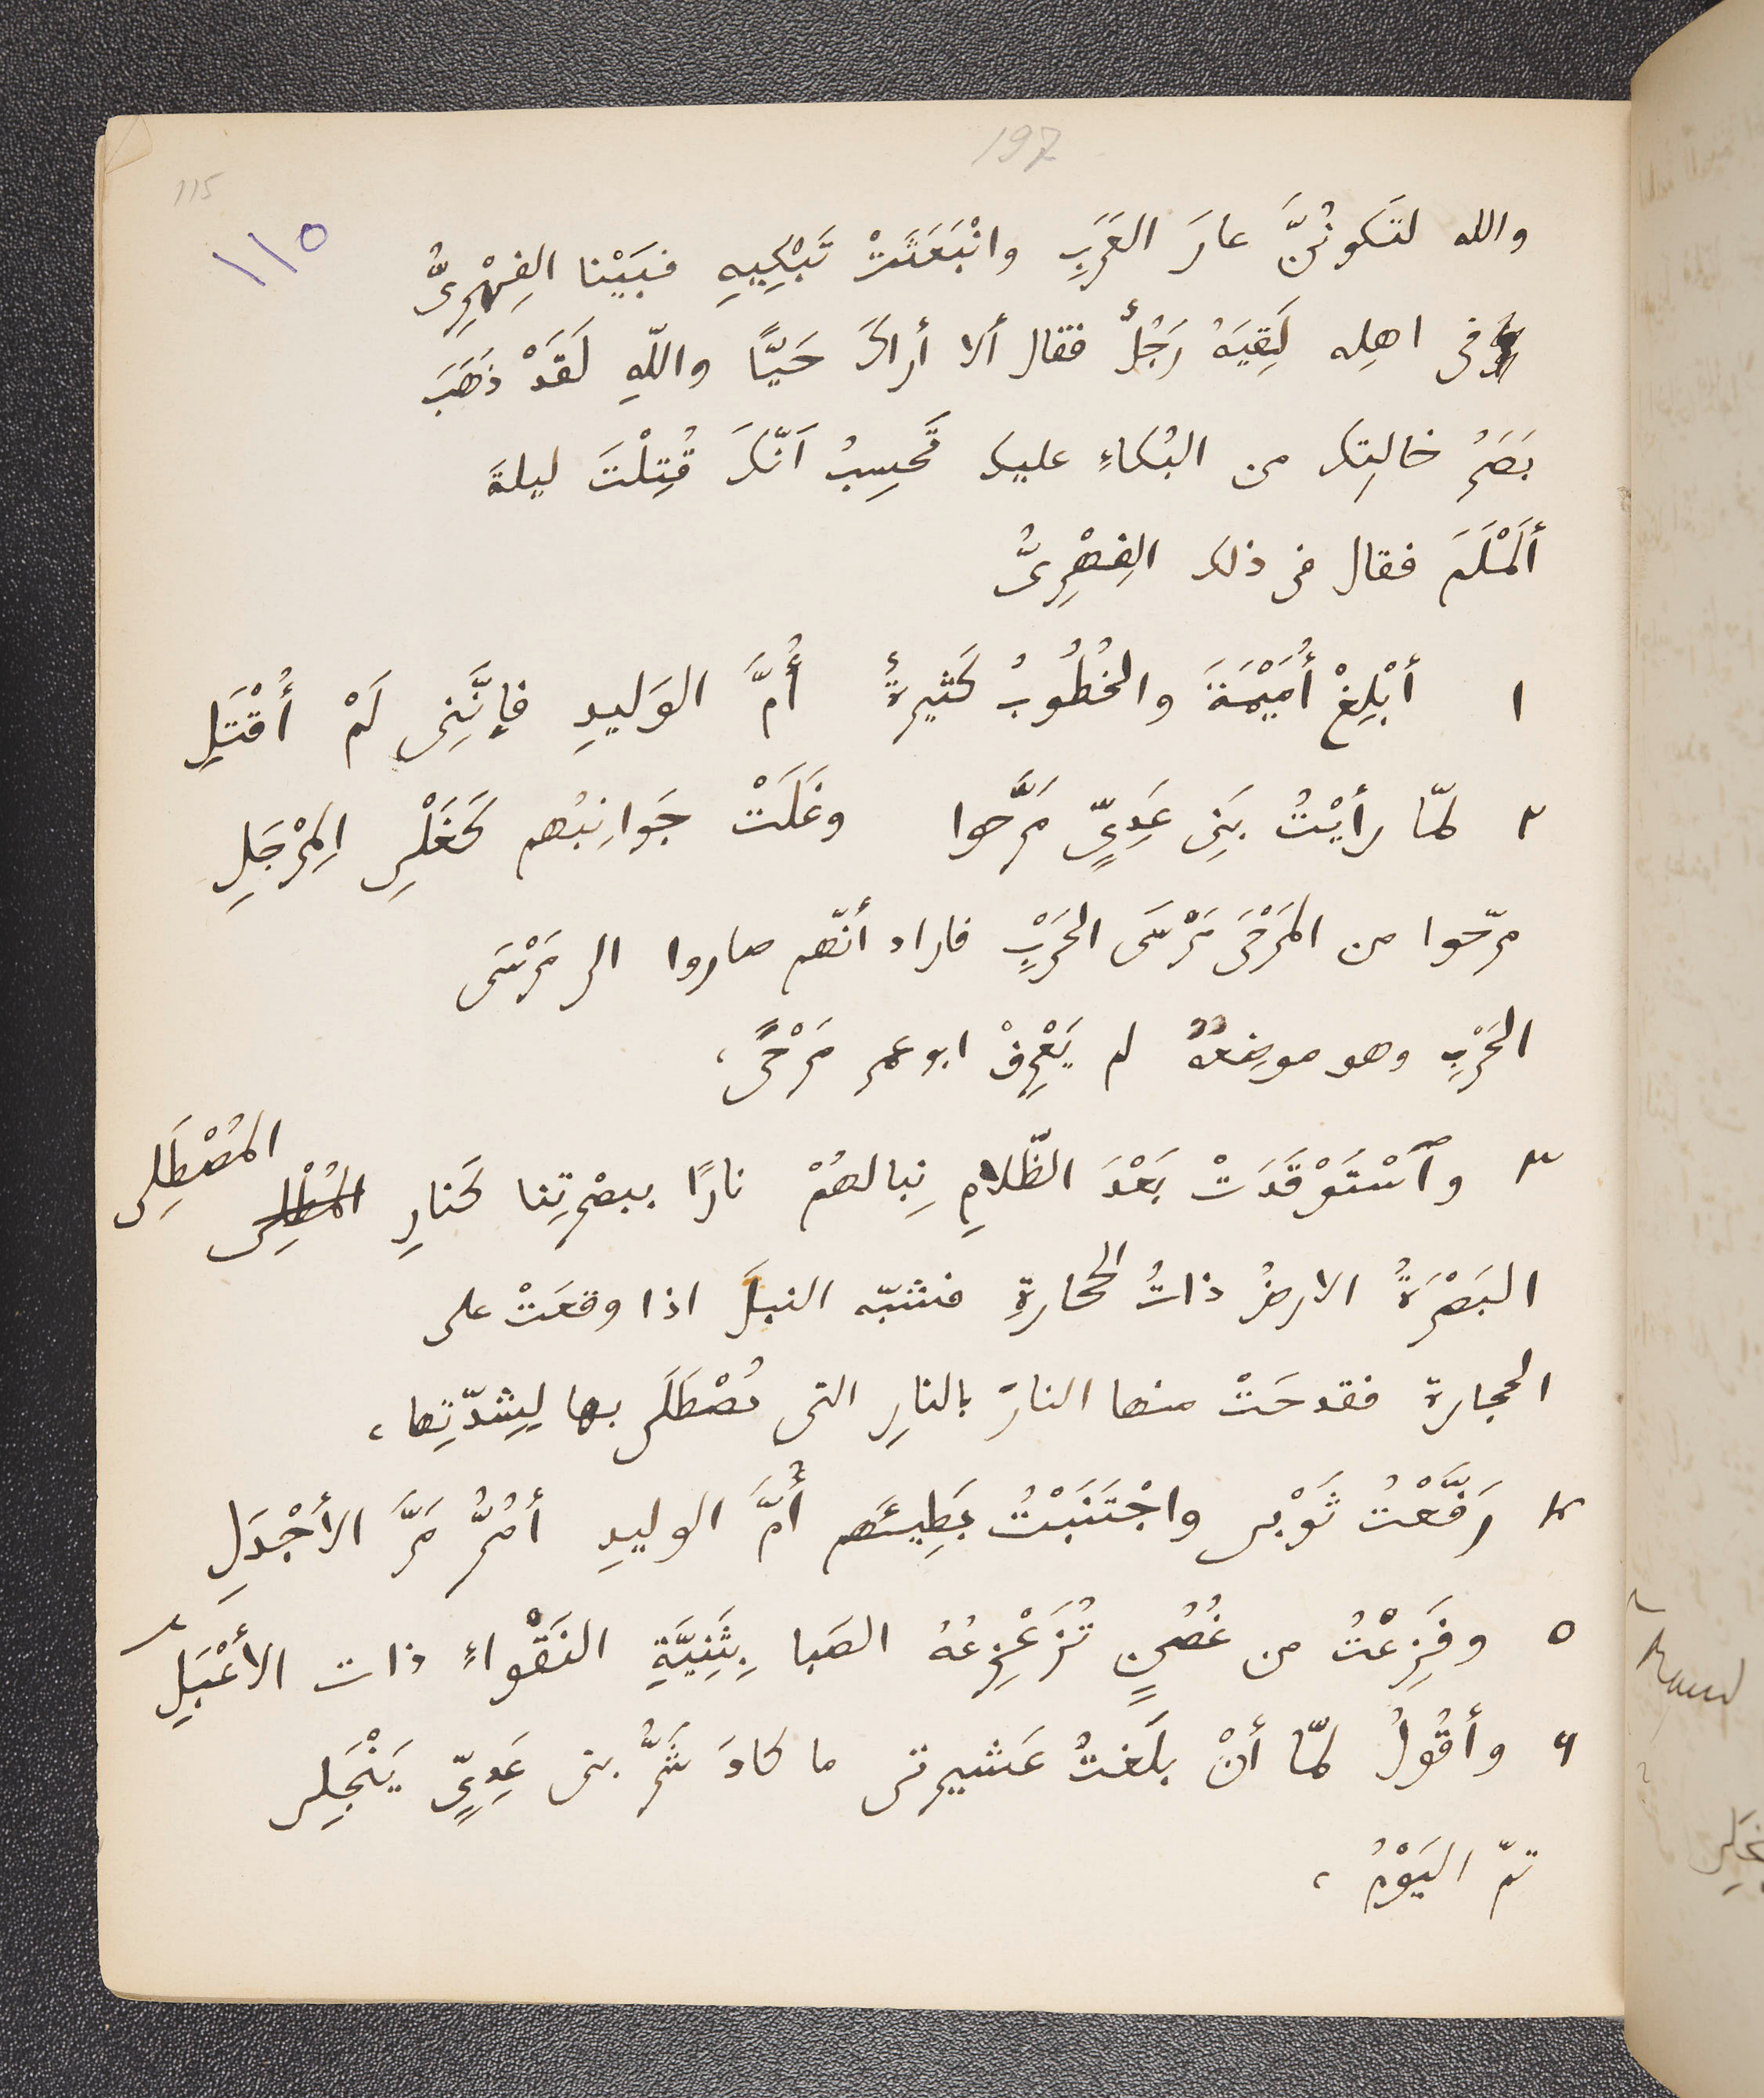 197
115
١١٥
والله لتَكونُنَّ عارَ العَرَبِ وانْبَعَثَتْ تَبْكِيهِ فبَيْنا الفِهْرِىُّ
فى اهلِه لَقِيَهُ رَجُلٌ فقال ألا أراكَ حَيًّا واللّهِ لَقَدْ ذَهَبَ
بَصَرُ خالتِك من البُكاءِ عليك تَحسِبُ اَنّكَ قُتِلْتَ ليلةَ
أَلَمْلَمَ فقال فى ذلك الفِهْرِىُّ
١ أبْلِغْ أُمَيْمَةَ والخُطُوبُ كَثيرةٌ أُمَّ الوَليدِ فإنَّنِى لَمْ أُقْتَلِ
٢ لمّا رأيْتُ بَنِى عَدِىٍّ مَرَّحوا وغَلَتْ جَوانِبُهم كَغَلْىِ المِرْجَلِ
مرّحوا من المَرْحَى مَرْسَى الحَرْبِ فاراد أنّهم صاروا الى مَرْسَى
الحَرْبِ وهو موضِعُهُ لم يَعْرِفْ ابو عمر مَرْحًى،
٣ وٱسْتَوْقَدَتْ بَعْدَ الظّلامِ نِبالهُمْ نارًا ببصْرتِنا كَنارِ المُصْطَلِى
البَصْرَةُ الارضُ ذاتُ الحجارةِ فشبّه النبلَ اذا وقعَتْ على
الحجارة فقدحَتْ منها النارَ بالنارِ التى تُصْطَلَى بها لِشدّتِها،
٤ رَفَّعْتُ ثَوْبى واجْتَنَبْتُ بَطِيئَهم أُمَّ الوليدِ أمُرُّ مَرَّ الأجْدَلِ
٥ وفَزِعْتُ من غُصُنٍ تُزَعْزِعُهُ الصَبا بِثَنِيَّةِ النَقْواءِ ذات الأعْبَلِ
٦ وأقُولُ لمّا أنْ بلَغتُ عَشيرتى ما كادَ شَرُّ بنى عَدِىٍّ يَنْجَلِى
تمّ اليَوْمُ،